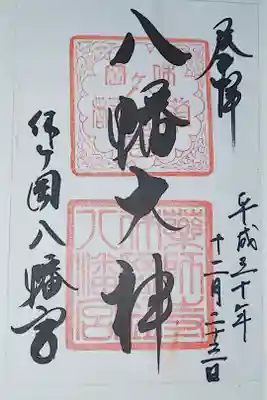 奉拝
八幡大神
平成三十年
十二月二十三日
休ヶ岡八幡宮
薬師寺
八幡宮